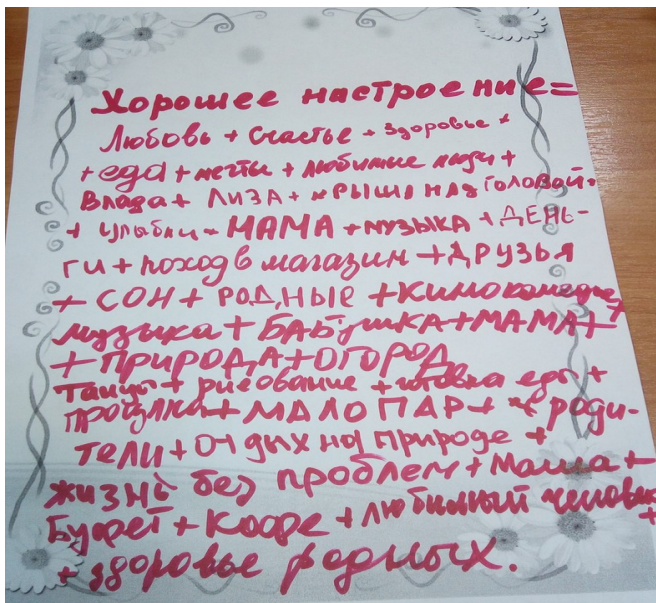 Хорошее настроение=
Любовь + Счастье + здоровье +
+ еда + мечты + любимые люди +
Влада + ЛИЗА + крыша над головой+
+ улыбки + МАМА + музыка + ДЕНЬ-
ги + поход в магазин + ДРУЗЬЯ
+ СОН + РОДНЫЕ + кинокомедие +
музыка + БАБУшКА + МАМА +
+ ПРИРОДА + ОГОРОД
Танцы + рисование + готовка еды +
прогулка + МАЛО ПАР + + роди-
тели + отдых на природе +
жизнь без проблем + Мама +
Буфет + Кофе + любимый человек
+ здоровье родных.